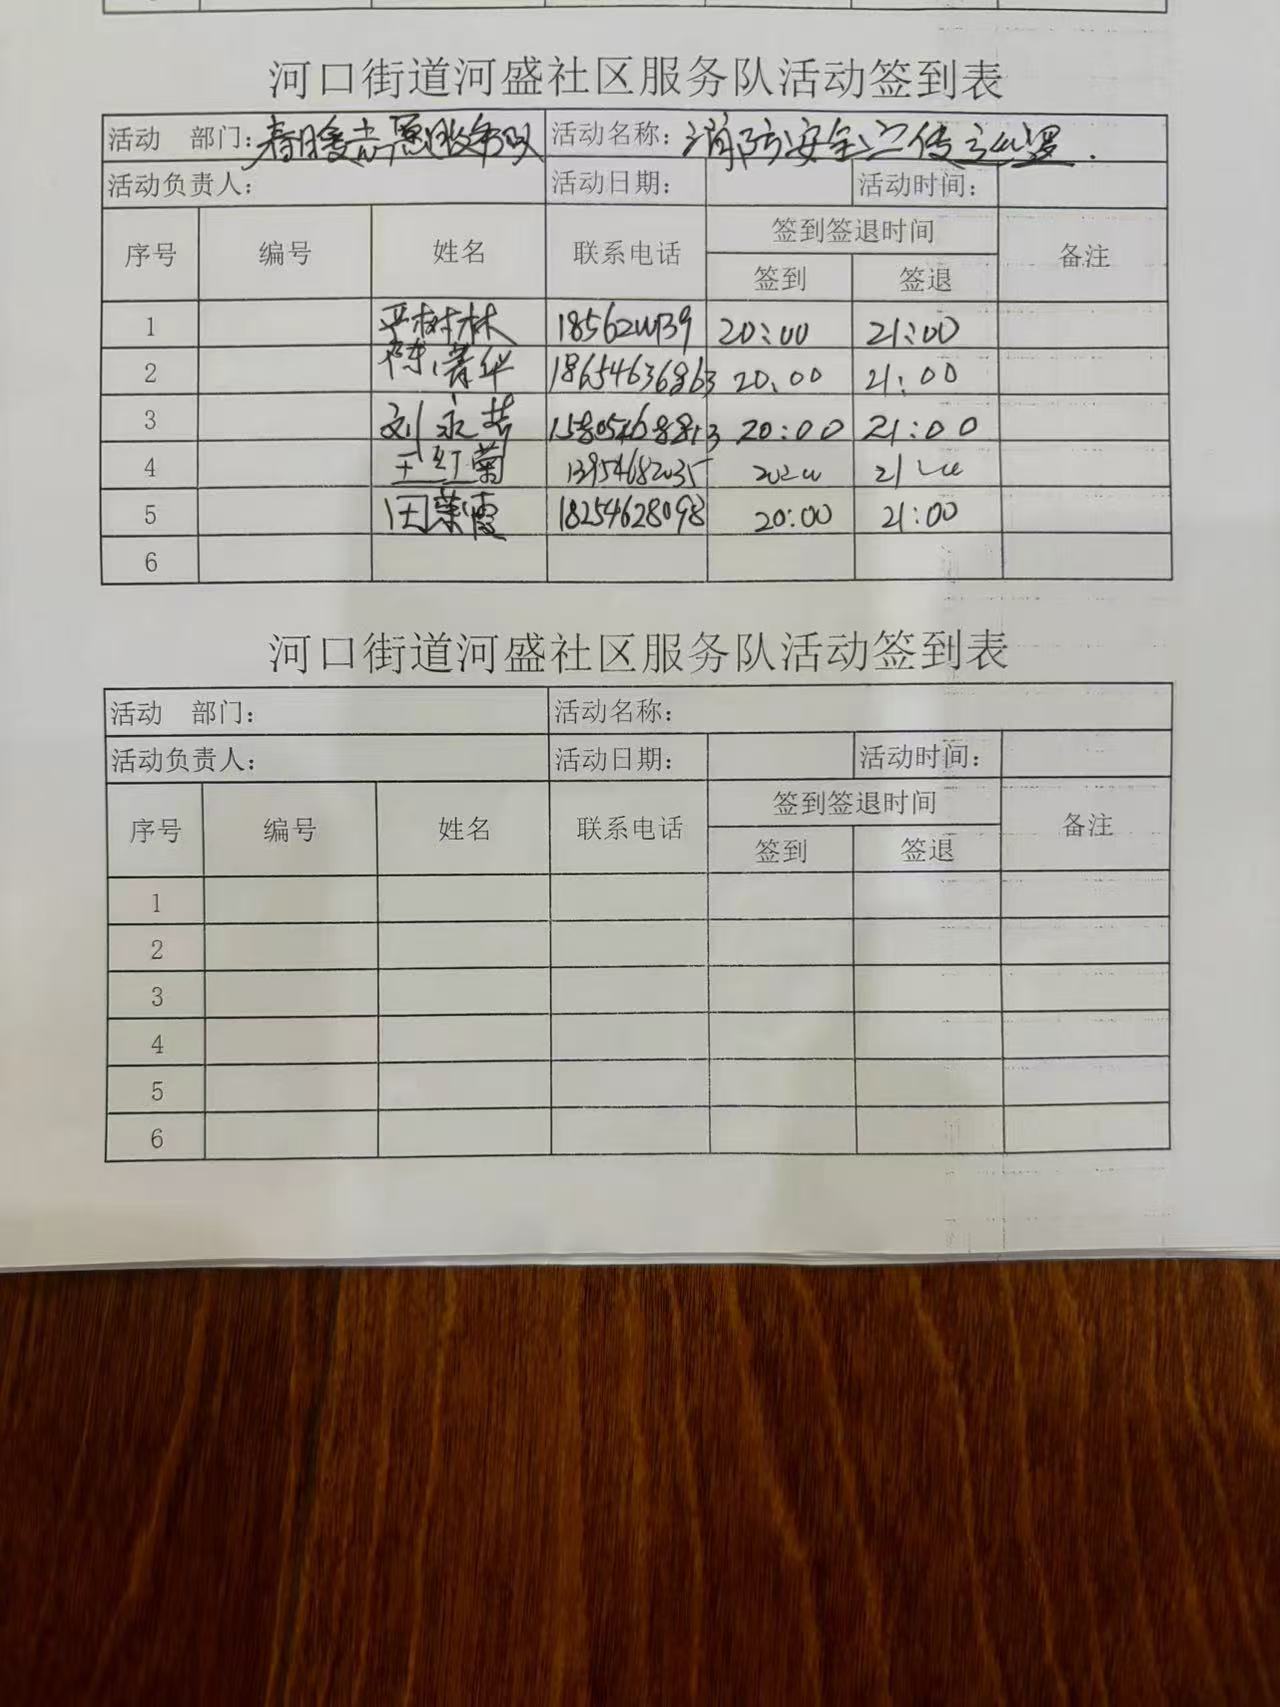 河口街道河盛社区服务队活动签到表
活动 部门: 春暖志愿服务队 活动名称: 消防安全宣传
活动负责人: 活动日期: 活动时间:
序号 编号 姓名 联系电话 签到签退时间 备注
签到 签退
1 严树林 20:00 21:00
2 陈菁华 18654636863 20:00 21:00
3 刘永 15805468813 20:00 21:00
4 王红菊 13954682035
5 田荣霞 18254628098 20:00 21:00
6
河口街道河盛社区服务队活动签到表
活动 部门: 活动名称:
活动负责人: 活动日期: 活动时间:
序号 编号 姓名 联系电话 签到签退时间 备注
签到 签退
1
2
3
4
5
6